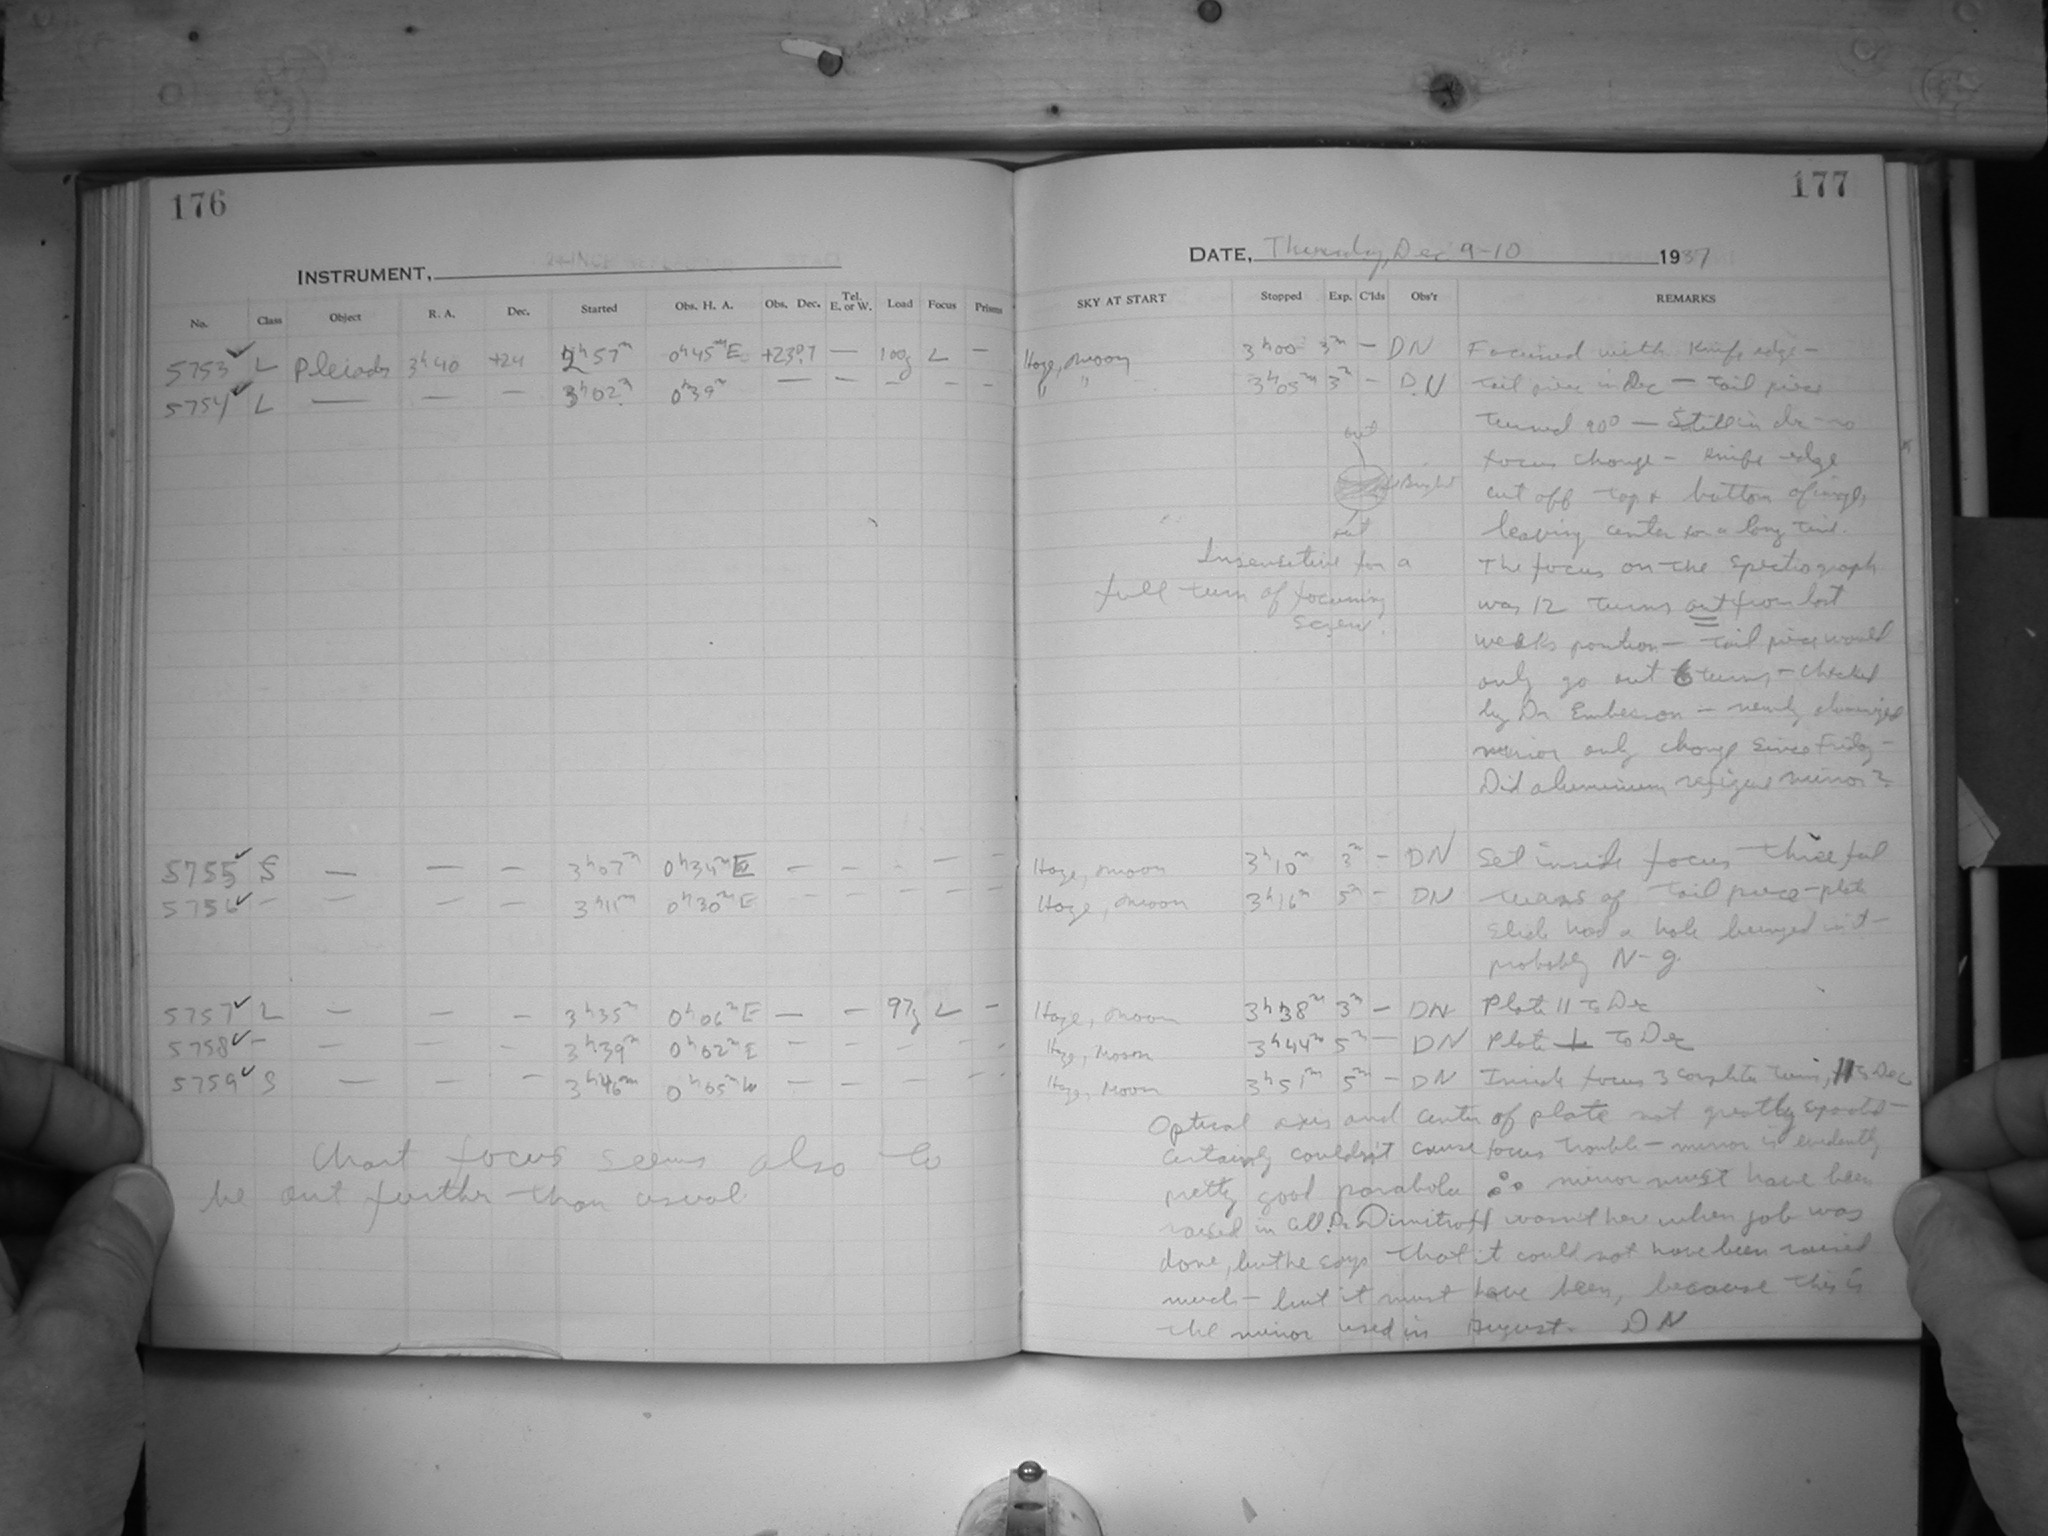 176
INSTRUMENT,
No. Class Object R. A. Dec. Started Obs. H. A. Obs. Dec. Tel. E. or W. Load Focus Prisms
5753 ✓ L Pleiads 3h40 +24 2h57m 0h45mE +23°.7 — 100g L —
5754 ✓ L — — — 3h02m 0h39m — — — — —
5755 ✓ S — — — 3h07m 0h34mE — — — —
5756 ✓ — — — — 3h11m 0h30mE — — — — —
5757 ✓ L — — — 3h35m 0h06mE — — 97g L —
5758 ✓ — — — — 3h39m 0h02mE — — — — —
5759 ✓ S — — — 3h46m 0h05mW — — — — —
Chart focus seems also to
be out further than usual.
177
DATE, Thursday, Dec 9-10 1937
SKY AT START Stopped Exp. C'lds Obs'r REMARKS
Haze, moon 3h00 3m — DN Focused with Knife edge —
" 3h05m 3m — DN tail piece in Dec — tail piece
turned 90° — Still in dec — no
focus change — Knife edge
cut off top & bottom of image,
leaving center for a long time.
The focus on the Spectrograph
was 12 turns out from last
weeks position — tail piece would
only go out 6 turns — Checked
by Dr Emberson — newly aluminized
mirror only change since Friday —
Did aluminum refigure mirror?
out
Bright
out
Insensitive for a
full turn of focusing
screw.
Haze, moon 3h10m 3m — DN Set inside focus three full
Haze, moon 3h16m 5m — DN turns of tail piece — plate
slide had a hole burned in it —
probably N-g.
Haze, moon 3h38m 3m — DN Plate 11 to Dec
Haze, Moon 3h44m 5m — DN Plate ⊥ to Dec
Haze, Moon 3h51m 5m — DN Inside focus 3 complete turns, 11 to Dec
Optical axis and center of plate not greatly —
Certainly couldn't cause focus trouble — mirror is evidently
pretty good parabola ∴ mirror must have been
raised in cell. Dr Dimitroff wasn't here when job was
done, but he says that it could not have been raised
much — but it must have been, because this is
the mirror used in August. DN